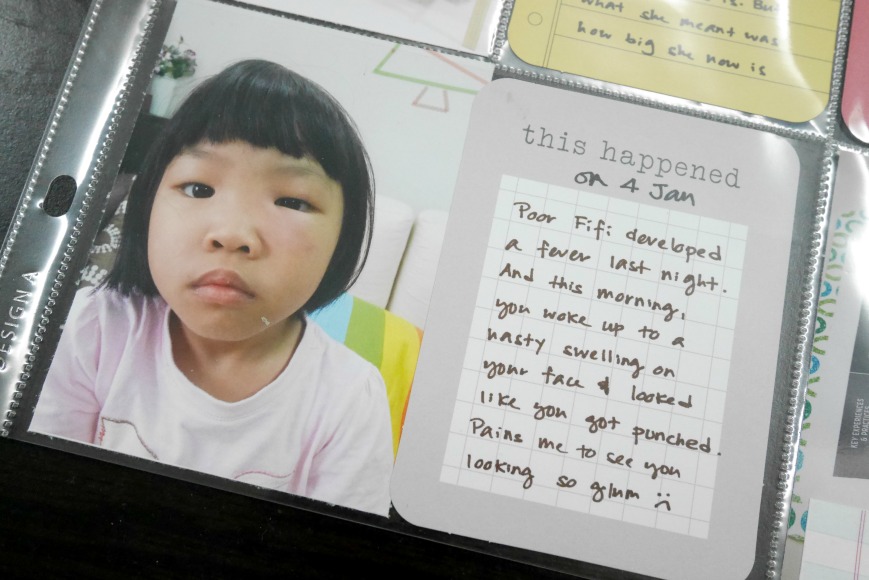 what she meant was
how big she now is
this happened
on 4 Jan
Poor Fifi developed
a fever last night.
And this morning,
you woke up to a
nasty swelling on
your face & looked
like you got punched.
Pains me to see you
looking so glum :(
DESIGN A
KEY EXPERIENCES
& PRACTICES